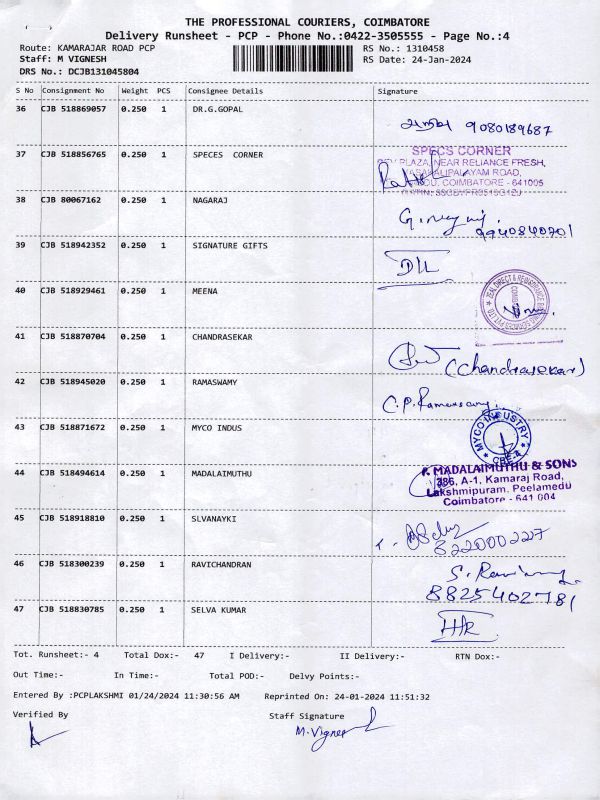 THE PROFESSIONAL COURIERS, COIMBATORE
Delivery Runsheet - PCP - Phone No.:0422-3505555 - Page No.:4
Route: KAMARAJAR ROAD PCP RS No.: 1310458
Staff: M VIGNESH RS Date: 24-Jan-2024
DRS No.: DCJB131045804
S No Consignment No Weight PCS Consignee Details Signature
36 CJB 518869057 0.250 1 DR.G.GOPAL
9080189687
37 CJB 518856765 0.250 1 SPECES CORNER
SPECS CORNER
PLAZA, NEAR RELIANCE FRESH,
ROAD,
COIMBATORE - 641005
38 CJB 80067162 0.250 1 NAGARAJ
9940840701
39 CJB 518942352 0.250 1 SIGNATURE GIFTS
40 CJB 518929461 0.250 1 MEENA
41 CJB 518870704 0.250 1 CHANDRASEKAR
(Chandrasekar)
42 CJB 518945020 0.250 1 RAMASWAMY
C.P. Ramasamy
43 CJB 518871672 0.250 1 MYCO INDUS
MYCO INDUSTRY
CBE.4
44 CJB 518494614 0.250 1 MADALAIMUTHU
MADALAIMUTHU & SONS
386, A-1, Kamaraj Road,
Lakshmipuram, Peelamedu
Coimbatore - 641 004
45 CJB 518918810 0.250 1 SLVANAYKI
8220002227
46 CJB 518300239 0.250 1 RAVICHANDRAN
8825402781
47 CJB 518830785 0.250 1 SELVA KUMAR
Tot. Runsheet:- 4 Total Dox:- 47 I Delivery:- II Delivery:- RTN Dox:-
Out Time:- In Time:- Total POD:- Delvy Points:-
Entered By :PCPLAKSHMI 01/24/2024 11:30:56 AM Reprinted On: 24-01-2024 11:51:32
Verified By Staff Signature
M.Vignesh